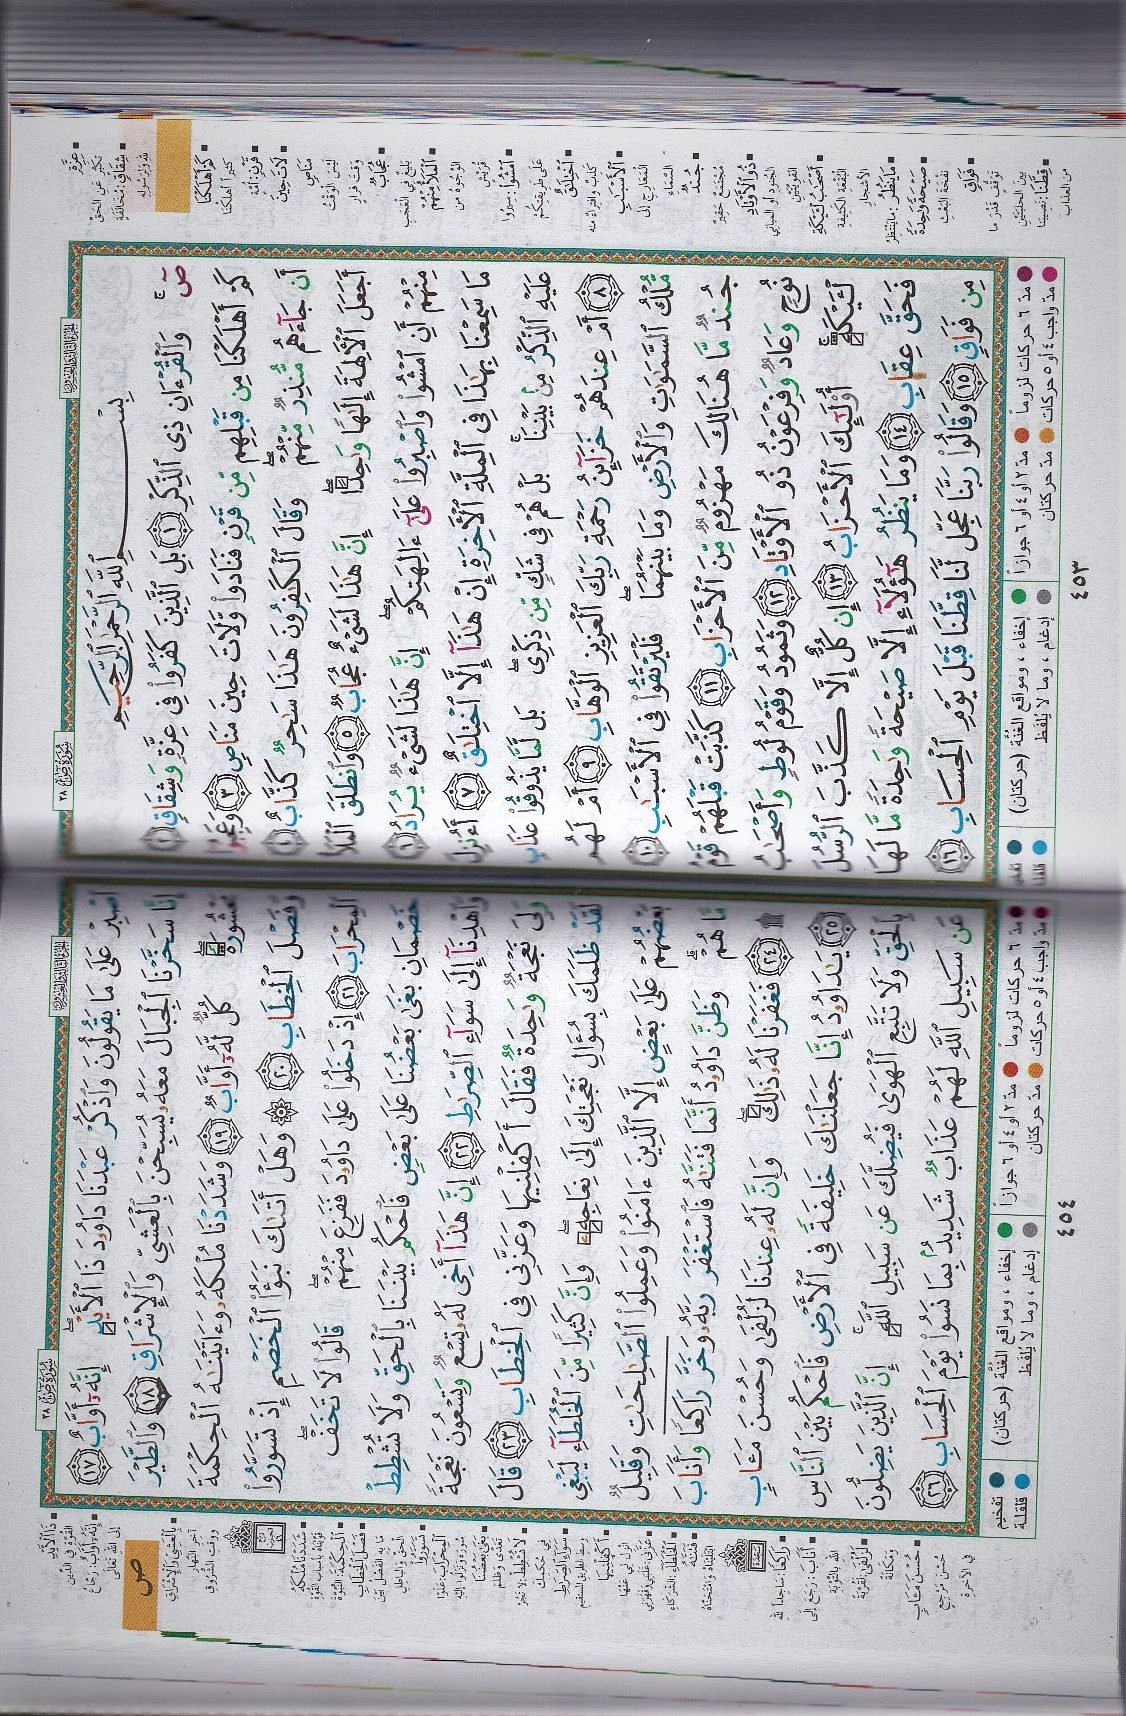 سُورَةُ صٓ ٣٨
الجزء الثالث والعشرون
بِسْمِ ٱللَّهِ ٱلرَّحْمَٰنِ ٱلرَّحِيمِ
صٓ ۚ وَٱلْقُرْءَانِ ذِى ٱلذِّكْرِ ١ بَلِ ٱلَّذِينَ كَفَرُوا۟ فِى عِزَّةٍ وَشِقَاقٍ ٢
كَمْ أَهْلَكْنَا مِن قَبْلِهِم مِّن قَرْنٍ فَنَادَوا۟ وَّلَاتَ حِينَ مَنَاصٍ ٣ وَعَجِبُوٓا۟
أَن جَآءَهُم مُّنذِرٌ مِّنْهُمْ ۖ وَقَالَ ٱلْكَٰفِرُونَ هَٰذَا سَٰحِرٌ كَذَّابٌ ٤
أَجَعَلَ ٱلْءَالِهَةَ إِلَٰهًا وَٰحِدًا ۖ إِنَّ هَٰذَا لَشَىْءٌ عُجَابٌ ٥ وَٱنطَلَقَ ٱلْمَلَأُ
مِنْهُمْ أَنِ ٱمْشُوا۟ وَٱصْبِرُوا۟ عَلَىٰٓ ءَالِهَتِكُمْ ۖ إِنَّ هَٰذَا لَشَىْءٌ يُرَادُ ٦
مَا سَمِعْنَا بِهَٰذَا فِى ٱلْمِلَّةِ ٱلْءَاخِرَةِ إِنْ هَٰذَآ إِلَّا ٱخْتِلَٰقٌ ٧ أَءُنزِلَ
عَلَيْهِ ٱلذِّكْرُ مِنۢ بَيْنِنَا ۚ بَلْ هُمْ فِى شَكٍّ مِّن ذِكْرِى ۖ بَل لَّمَّا يَذُوقُوا۟ عَذَابِ
٨ أَمْ عِندَهُمْ خَزَآئِنُ رَحْمَةِ رَبِّكَ ٱلْعَزِيزِ ٱلْوَهَّابِ ٩ أَمْ لَهُم
مُّلْكُ ٱلسَّمَٰوَٰتِ وَٱلْأَرْضِ وَمَا بَيْنَهُمَا ۖ فَلْيَرْتَقُوا۟ فِى ٱلْأَسْبَٰبِ ١٠
جُندٌ مَّا هُنَالِكَ مَهْزُومٌ مِّنَ ٱلْأَحْزَابِ ١١ كَذَّبَتْ قَبْلَهُمْ قَوْمُ
نُوحٍ وَعَادٌ وَفِرْعَوْنُ ذُو ٱلْأَوْتَادِ ١٢ وَثَمُودُ وَقَوْمُ لُوطٍ وَأَصْحَٰبُ
لْـَٔيْكَةِ ۚ أُو۟لَٰٓئِكَ ٱلْأَحْزَابُ ١٣ إِن كُلٌّ إِلَّا كَذَّبَ ٱلرُّسُلَ
فَحَقَّ عِقَابِ ١٤ وَمَا يَنظُرُ هَٰٓؤُلَآءِ إِلَّا صَيْحَةً وَٰحِدَةً مَّا لَهَا
مِن فَوَاقٍ ١٥ وَقَالُوا۟ رَبَّنَا عَجِّل لَّنَا قِطَّنَا قَبْلَ يَوْمِ ٱلْحِسَابِ ١٦
مدّ ٦ حركات لزوماً مدّ ٢ أو ٤ أو ٦ جوازاً إخفاء، ومواقع الغُنَّة (حركتان)
مدّ واجب ٤ أو ٥ حركات مدّ حركتان إدغام، وما لا يُلفَظ
٤٥٣
عِزَّةٍ
تكبّر عن الحق
شِقَاقٍ: مخالفة
لله ولرسوله
كَمْ أَهْلَكْنَا
كثيراً أهلكنا
قَرْنٍ: أمّة
لَاتَ حِينَ
مَنَاصٍ
ليس الوقتُ
وقت فرار
عُجَابٌ
بليغ في العجب
ٱلْمَلَأُ مِنْهُمْ
الوجوه من
قريش
ٱمْشُوا۟: سيروا
على طريقتكم
ٱخْتِلَٰقٌ
كذب وافتراء منه
ٱلْأَسْبَٰبِ
المعارج إلى
السماء
جُندٌ
مجتمع حقير
ذُو ٱلْأَوْتَادِ
الجنود أو المباني
القويتين
أَصْحَٰبُ لْـَٔيْكَةِ
البقعة الكثيفة
الأشجار
مَا يَنظُرُ: ما ينتظر
صَيْحَةً وَٰحِدَةً
نفخة البعث
فَوَاقٍ
توقف قدر ما
بين الحلبتين
قِطَّنَا: نصيبنا
من العذاب
سُورَةُ صٓ ٣٨
الجزء الثالث والعشرون
ٱصْبِرْ عَلَىٰ مَا يَقُولُونَ وَٱذْكُرْ عَبْدَنَا دَاوُۥدَ ذَا ٱلْأَيْدِ ۖ إِنَّهُۥٓ أَوَّابٌ ١٧
إِنَّا سَخَّرْنَا ٱلْجِبَالَ مَعَهُۥ يُسَبِّحْنَ بِٱلْعَشِىِّ وَٱلْإِشْرَاقِ ١٨ وَٱلطَّيْرَ
مَحْشُورَةً ۖ كُلٌّ لَّهُۥٓ أَوَّابٌ ١٩ وَشَدَدْنَا مُلْكَهُۥ وَءَاتَيْنَٰهُ ٱلْحِكْمَةَ
وَفَصْلَ ٱلْخِطَابِ ٢٠ ۞ وَهَلْ أَتَىٰكَ نَبَؤُا۟ ٱلْخَصْمِ إِذْ تَسَوَّرُوا۟
ٱلْمِحْرَابَ ٢١ إِذْ دَخَلُوا۟ عَلَىٰ دَاوُۥدَ فَفَزِعَ مِنْهُمْ ۖ قَالُوا۟ لَا تَخَفْ ۖ
خَصْمَانِ بَغَىٰ بَعْضُنَا عَلَىٰ بَعْضٍ فَٱحْكُم بَيْنَنَا بِٱلْحَقِّ وَلَا تُشْطِطْ
وَٱهْدِنَآ إِلَىٰ سَوَآءِ ٱلصِّرَٰطِ ٢٢ إِنَّ هَٰذَآ أَخِى لَهُۥ تِسْعٌ وَتِسْعُونَ نَعْجَةً
وَلِىَ نَعْجَةٌ وَٰحِدَةٌ فَقَالَ أَكْفِلْنِيهَا وَعَزَّنِى فِى ٱلْخِطَابِ ٢٣ قَالَ
لَقَدْ ظَلَمَكَ بِسُؤَالِ نَعْجَتِكَ إِلَىٰ نِعَاجِهِۦ ۖ وَإِنَّ كَثِيرًا مِّنَ ٱلْخُلَطَآءِ لَيَبْغِى
بَعْضُهُمْ عَلَىٰ بَعْضٍ إِلَّا ٱلَّذِينَ ءَامَنُوا۟ وَعَمِلُوا۟ ٱلصَّٰلِحَٰتِ وَقَلِيلٌ
مَّا هُمْ ۗ وَظَنَّ دَاوُۥدُ أَنَّمَا فَتَنَّٰهُ فَٱسْتَغْفَرَ رَبَّهُۥ وَخَرَّ رَاكِعًا وَأَنَابَ
۩ ٢٤ فَغَفَرْنَا لَهُۥ ذَٰلِكَ ۖ وَإِنَّ لَهُۥ عِندَنَا لَزُلْفَىٰ وَحُسْنَ مَـَٔابٍ
٢٥ يَٰدَاوُۥدُ إِنَّا جَعَلْنَٰكَ خَلِيفَةً فِى ٱلْأَرْضِ فَٱحْكُم بَيْنَ ٱلنَّاسِ
بِٱلْحَقِّ وَلَا تَتَّبِعِ ٱلْهَوَىٰ فَيُضِلَّكَ عَن سَبِيلِ ٱللَّهِ ۚ إِنَّ ٱلَّذِينَ يَضِلُّونَ
عَن سَبِيلِ ٱللَّهِ لَهُمْ عَذَابٌ شَدِيدٌۢ بِمَا نَسُوا۟ يَوْمَ ٱلْحِسَابِ ٢٦
مدّ ٦ حركات لزوماً مدّ ٢ أو ٤ أو ٦ جوازاً إخفاء، ومواقع الغُنَّة (حركتان) تفخيم
مدّ واجب ٤ أو ٥ حركات مدّ حركتان إدغام، وما لا يُلفَظ قلقلة
٤٥٤
ذَا ٱلْأَيْدِ
القوة في الدين
إِنَّهُۥٓ أَوَّابٌ: رجّاع
إلى الله تعالى
ص
بِٱلْعَشِىِّ وَٱلْإِشْرَاقِ
آخر النهار
ووقت الشروق
شَدَدْنَا مُلْكَهُۥ
قوّيناه بأسباب القوة
ٱلْحِكْمَةَ: النبوة
فَصْلَ ٱلْخِطَابِ
ما به الفصل بين
الحق والباطل
تَسَوَّرُوا۟ ٱلْمِحْرَابَ
بَغَىٰ بَعْضُنَا
تعدّى وظلم
لَا تُشْطِطْ: لا تجُر
في حكمك
سَوَآءِ ٱلصِّرَٰطِ
وسط الطريق المستقيم
أَكْفِلْنِيهَا
انزل لي عنها
عَزَّنِى: غلبني وقهرني
ٱلْخُلَطَآءِ: الشركاء
فَتَنَّٰهُ
ابتليناه وامتحناه
رَاكِعًا: ساجداً لله
أَنَابَ: رجع إلى
الله بالتوبة
لَزُلْفَىٰ: لقربة
ومكانة
حُسْنَ مَـَٔابٍ
حُسن مرجع
في الآخرة